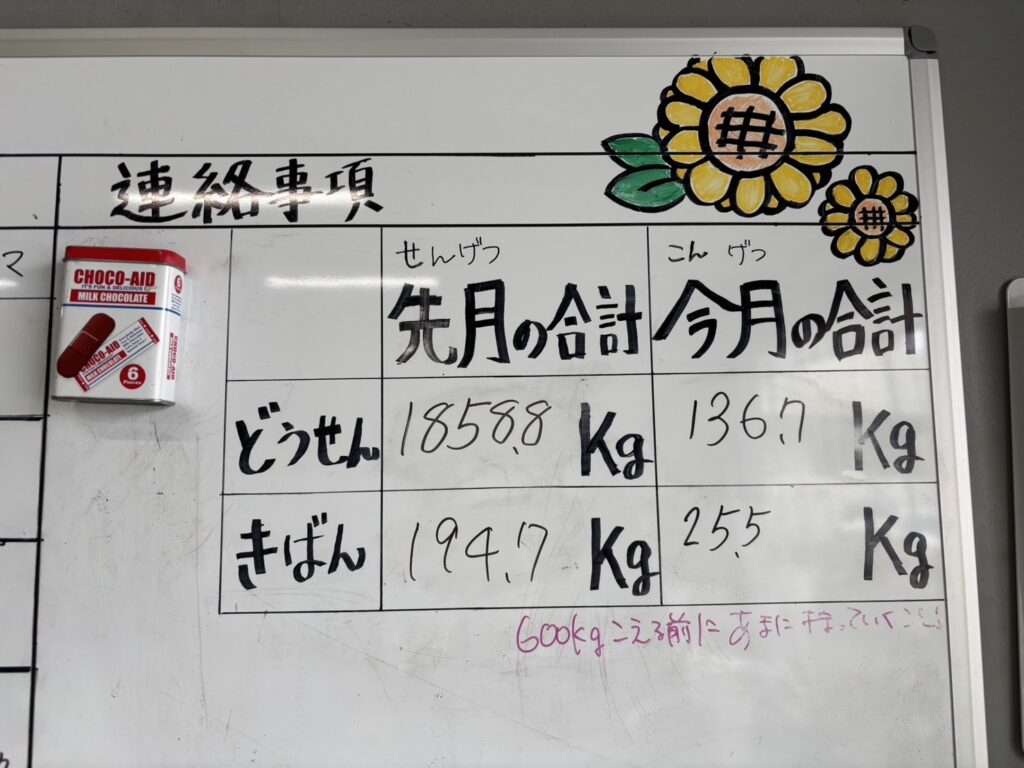 連絡事項
マ
CHOCO-AID
IT'S FUN & DELICIOUS!
MILK CHOCOLATE
CHOCO-AID
MILK CHOCOLATE
6
Pieces
CHOCO-AID
せんげつ こんげつ
先月の合計 今月の合計
どうせん 1858.8 Kg 136.7 Kg
きばん 194.7 Kg 25.5 Kg
600kgこえる前に